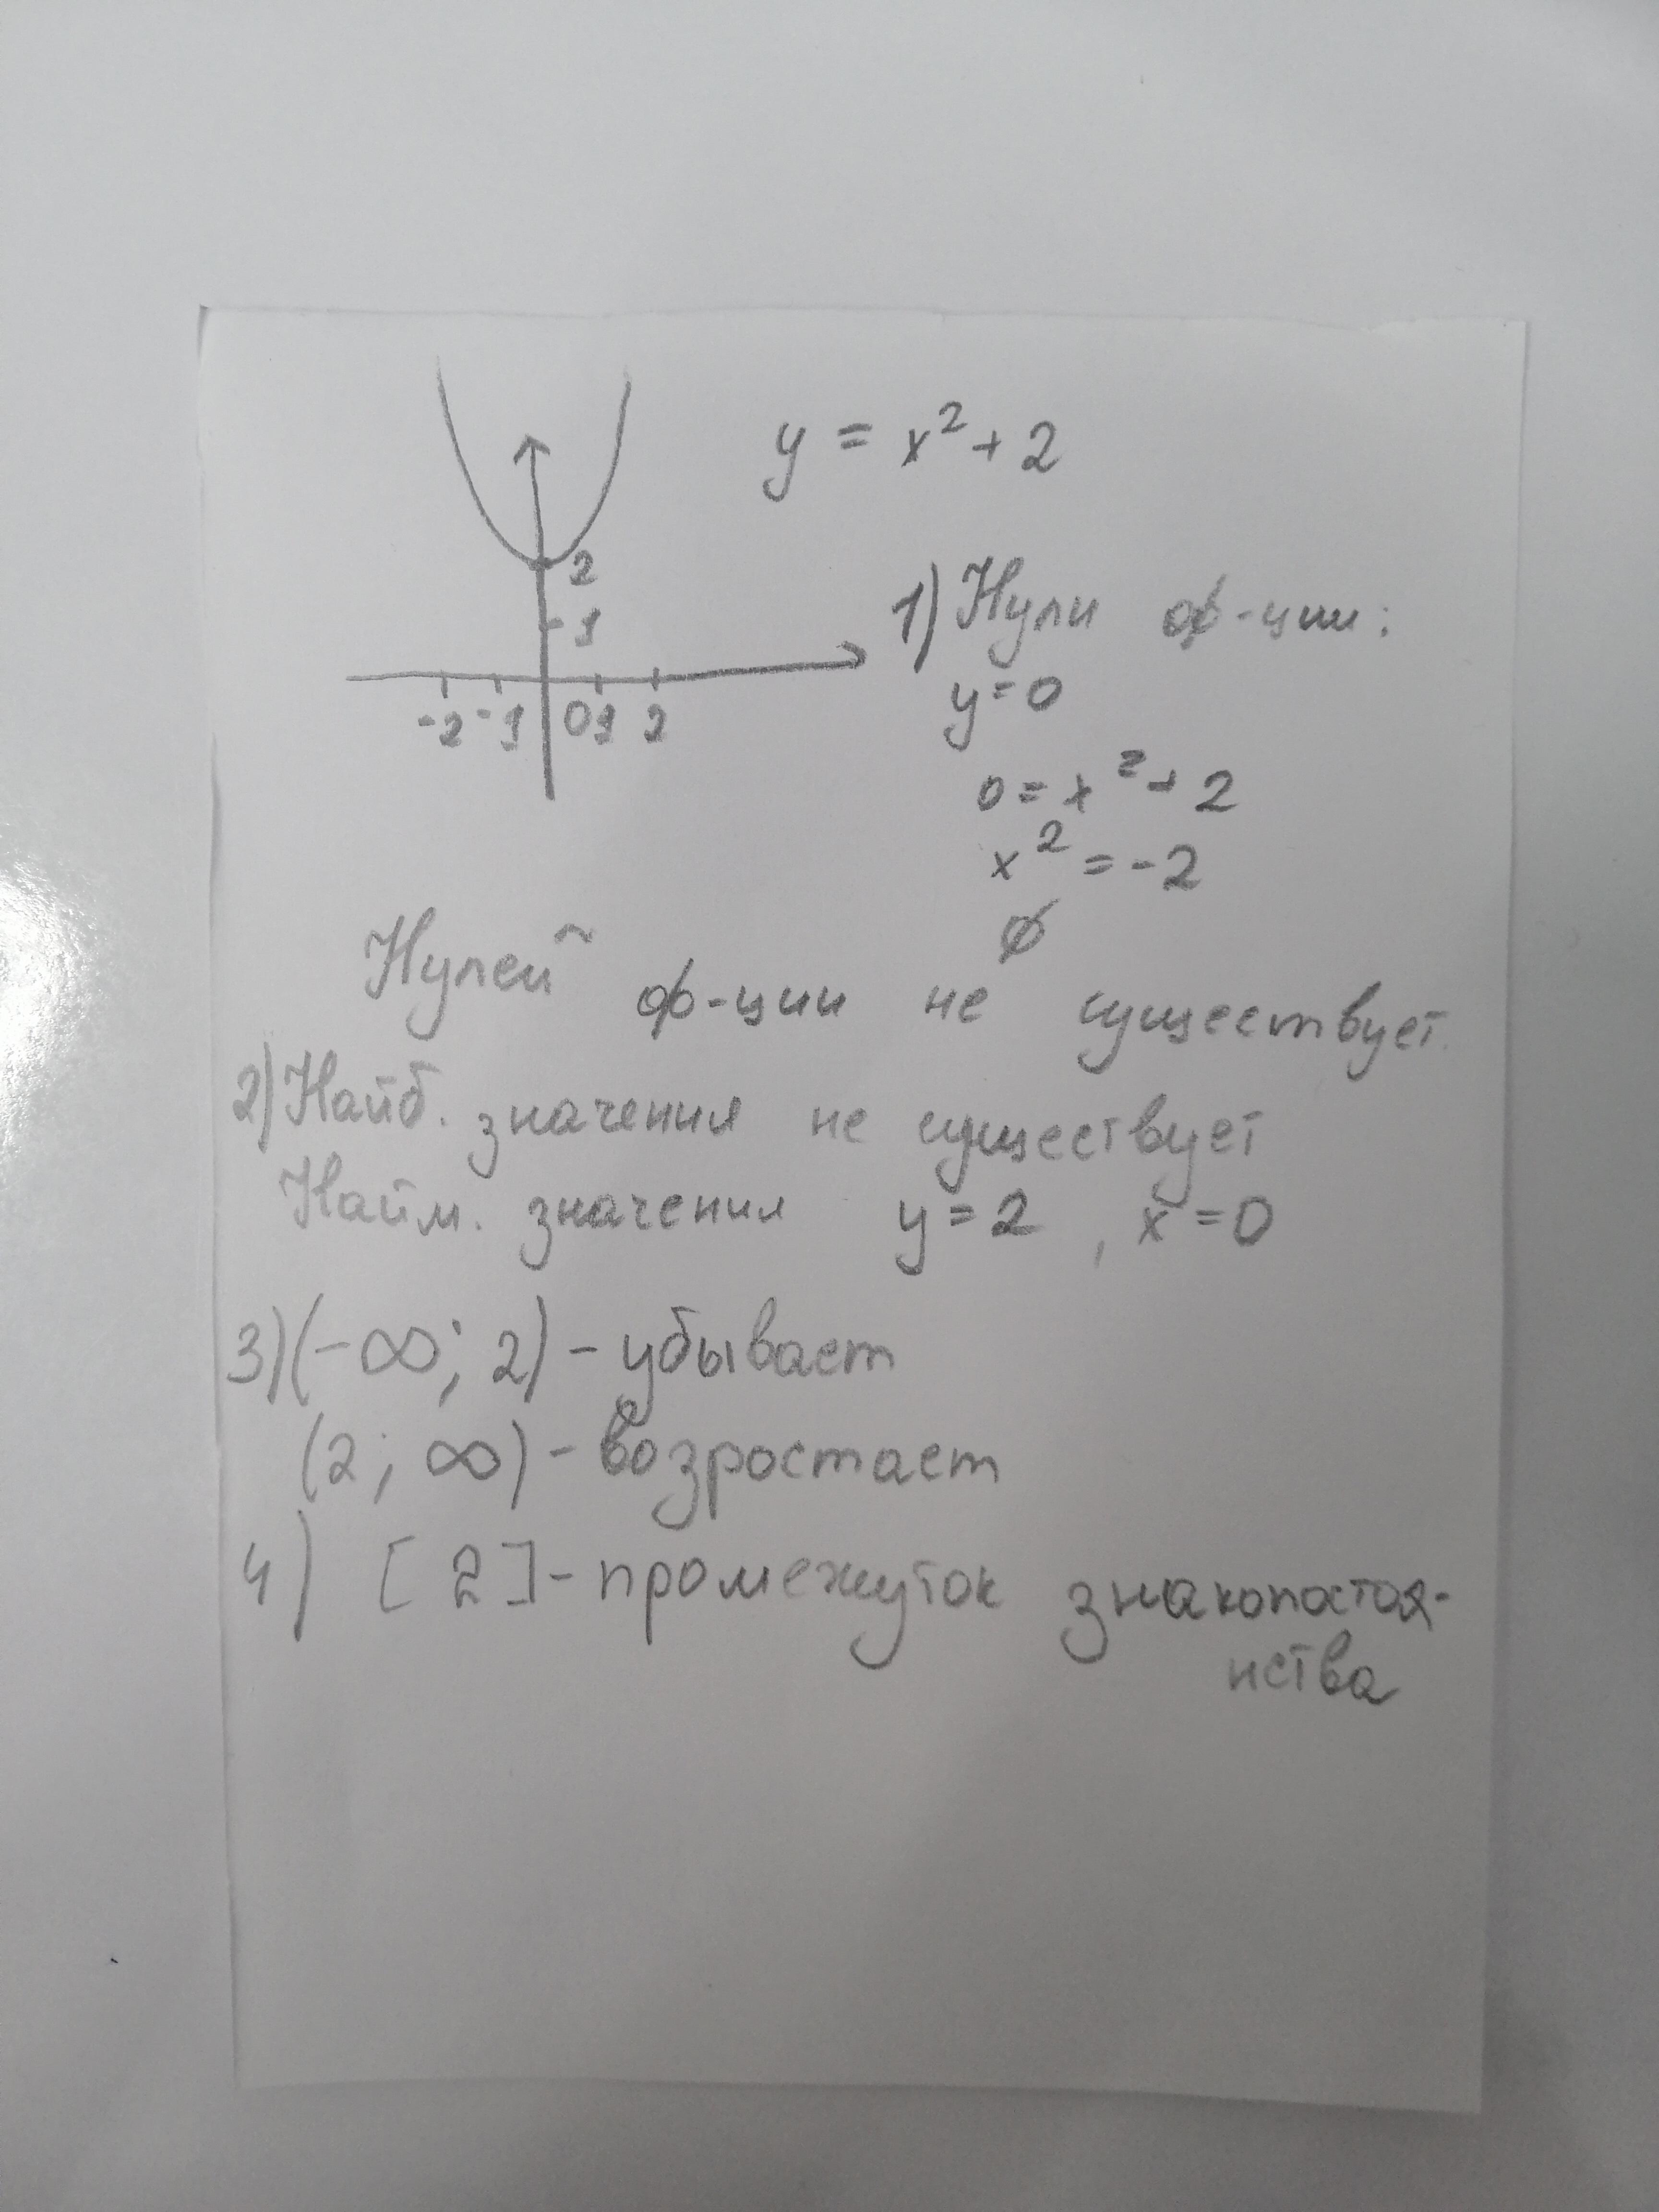 y = x² + 2
2
1
-2 -1 0 1 2
1) Нули ф-ции:
y = 0
0 = x² + 2
x² = -2
∅
Нулей ф-ции не существует.
2) Найб. значения не существует
Найм. значения y = 2, x = 0
3) (-∞; 2) - убывает
(2; ∞) - возростает
4) [2] - промежуток знакопостоя-
нства